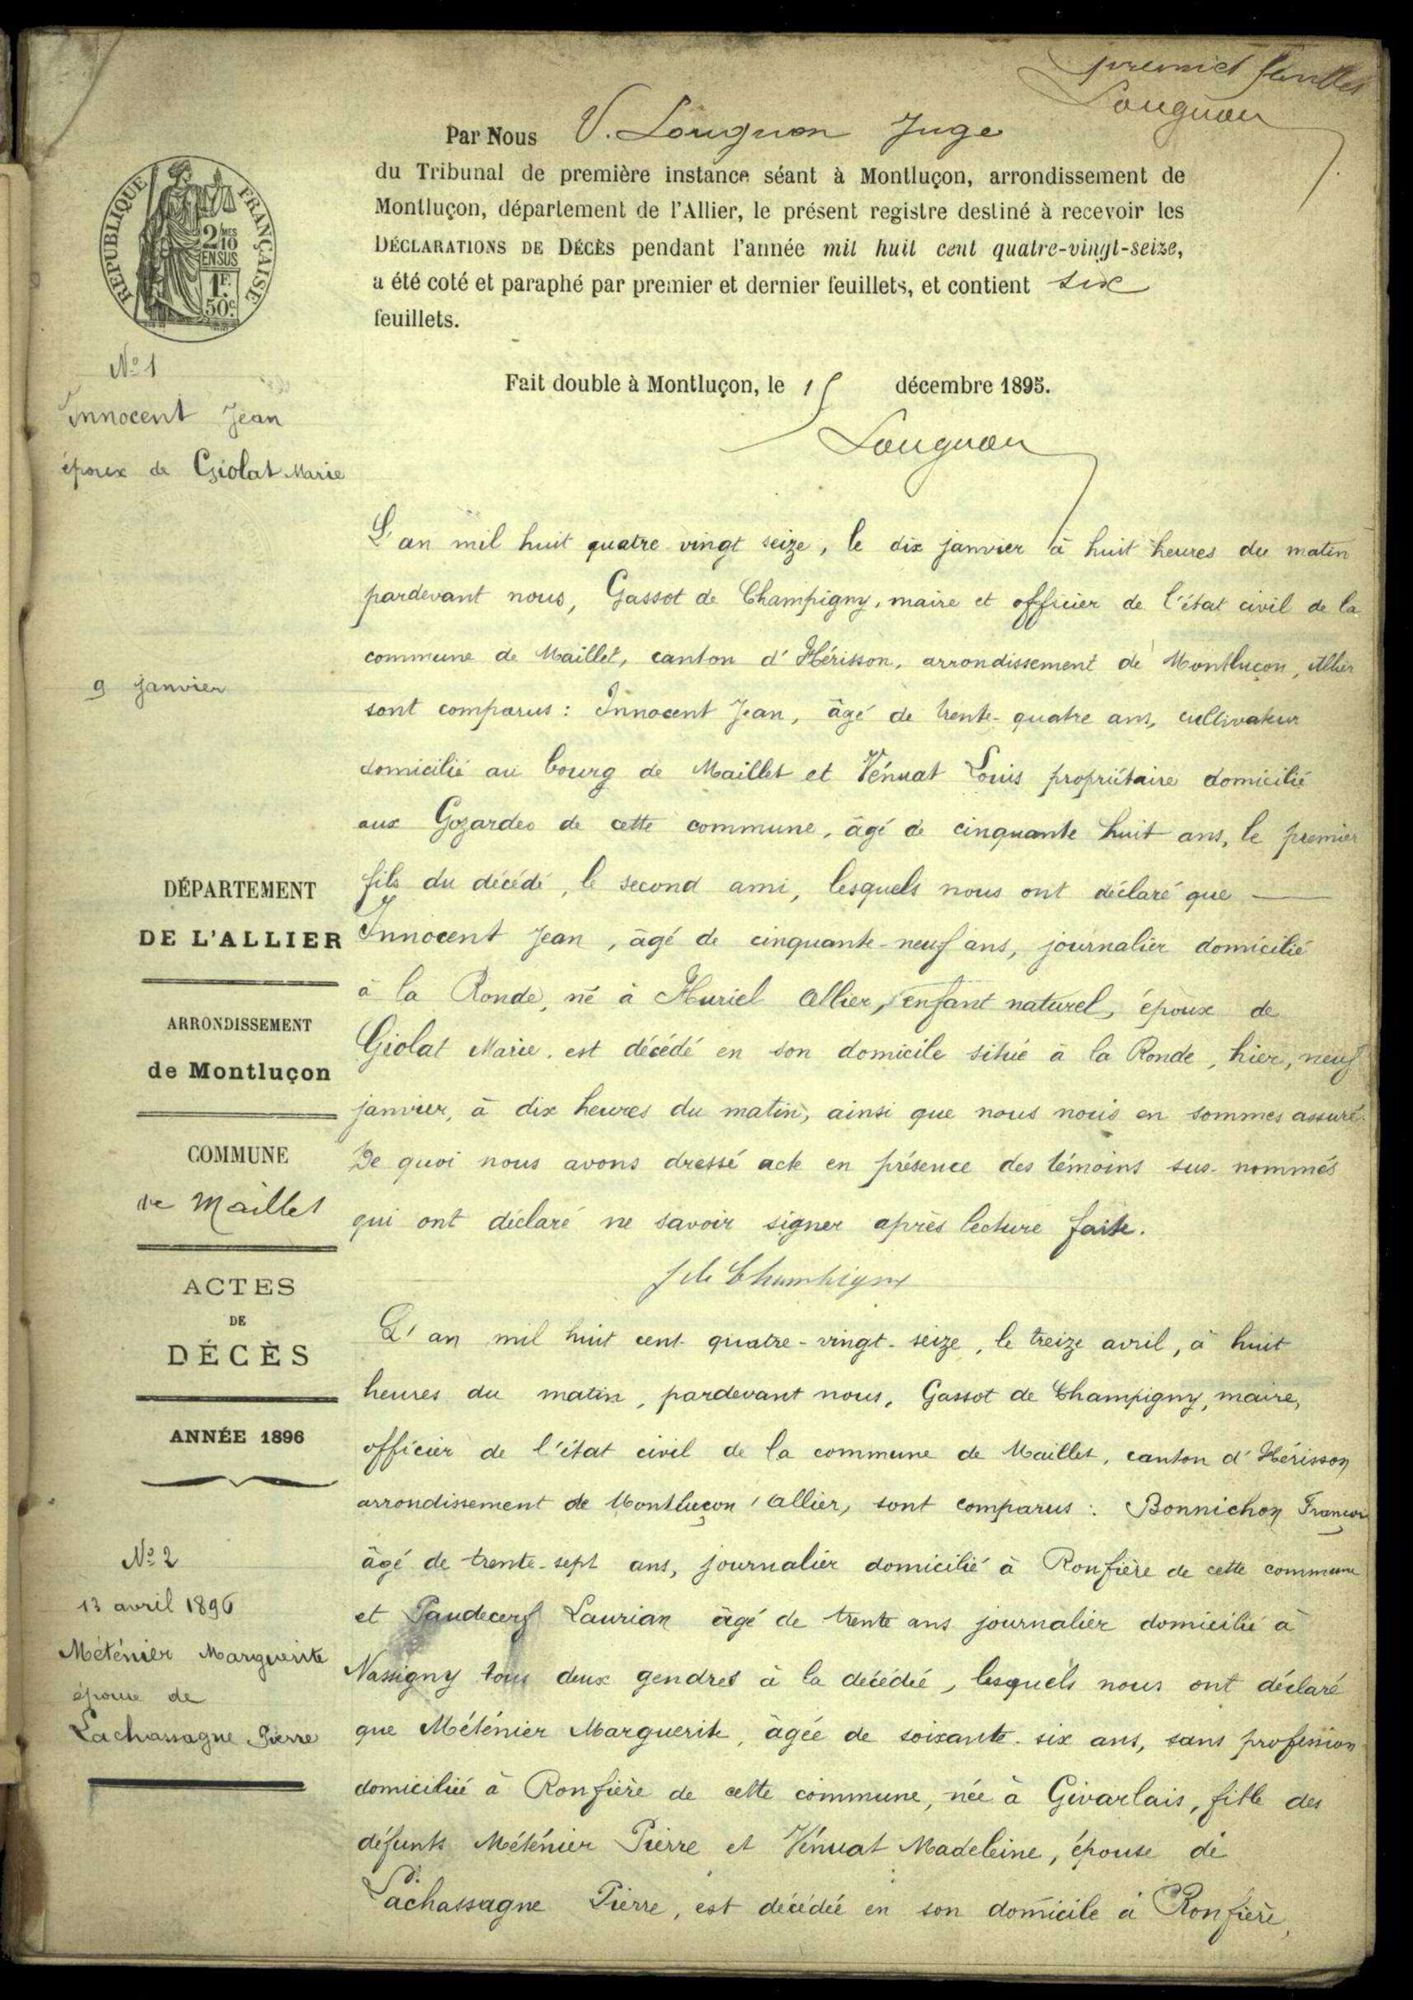 premier feuillet
Louguon
Par Nous V. Louguon Juge
du Tribunal de première instance séant à Montluçon, arrondissement de
Montluçon, département de l'Allier, le présent registre destiné à recevoir les
DÉCLARATIONS DE DÉCÈS pendant l'année mil huit cent quatre-vingt-seize,
a été coté et paraphé par premier et dernier feuillets, et contient six
feuillets.
Fait double à Montluçon, le 15 décembre 1895.
Louguon
RÉPUBLIQUE FRANÇAISE
2 10MES
EN SUS
1F
50C.
No 1
Innocent Jean
époux de Giolat Marie
9 janvier
L'an mil huit quatre vingt seize, le dix janvier à huit heures du matin
pardevant nous, Gassot de Champigny, maire et officier de l'état civil de la
commune de Maillet, canton d'Hérisson, arrondissement de Montluçon, Allier
sont comparus : Innocent Jean, âgé de trente-quatre ans, cultivateur
domicilié au bourg de Maillet et Vénuat Louis propriétaire domicilié
aux Gozardes de cette commune, âgé de cinquante huit ans, le premier
fils du décédé, le second ami, lesquels nous ont déclaré que —
Innocent Jean, âgé de cinquante-neuf ans, journalier domicilié
à la Ronde, né à Huriel Allier, enfant naturel, époux de
Giolat Marie, est décédé en son domicile situé à la Ronde, hier, neuf
janvier, à dix heures du matin, ainsi que nous nous en sommes assuré.
De quoi nous avons dressé acte en présence des témoins sus-nommés
qui ont déclaré ne savoir signer après lecture faite.
de Champigny
DÉPARTEMENT
DE L'ALLIER
ARRONDISSEMENT
de Montluçon
COMMUNE
de Maillet
ACTES
DE
DÉCÈS
ANNÉE 1896
No 2
13 avril 1896
Méténier Marguerite
épouse de
Lachassagne Pierre
L'an mil huit cent quatre-vingt-seize, le treize avril, à huit
heures du matin, pardevant nous, Gassot de Champigny, maire,
officier de l'état civil de la commune de Maillet, canton d'Hérisson
arrondissement de Montluçon, Allier, sont comparus : Bonnichon François
âgé de trente-sept ans, journalier domicilié à Ronfière de cette commune
et Paudecerf Laurian âgé de trente ans journalier domicilié à
Nassigny tous deux gendres à la décédée, lesquels nous ont déclaré
que Méténier Marguerite, âgée de soixante-six ans, sans profession
domiciliée à Ronfière de cette commune, née à Givarlais, fille des
défunts Méténier Pierre et Vénuat Madeleine, épouse de
Lachassagne Pierre, est décédée en son domicile à Ronfière,